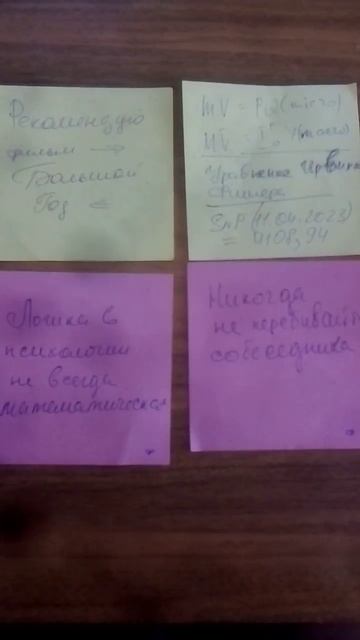 Рекомендую
фильм →
Большой
Год ⇐
MV = PQ (micro)
MV = (macro)
Уравнение Ирвинга
Фишера
SnP (11.04.2023)
= 4108,94
Логика в
психологии
не всегда
математическая
Никогда
не перебивайте
собеседника